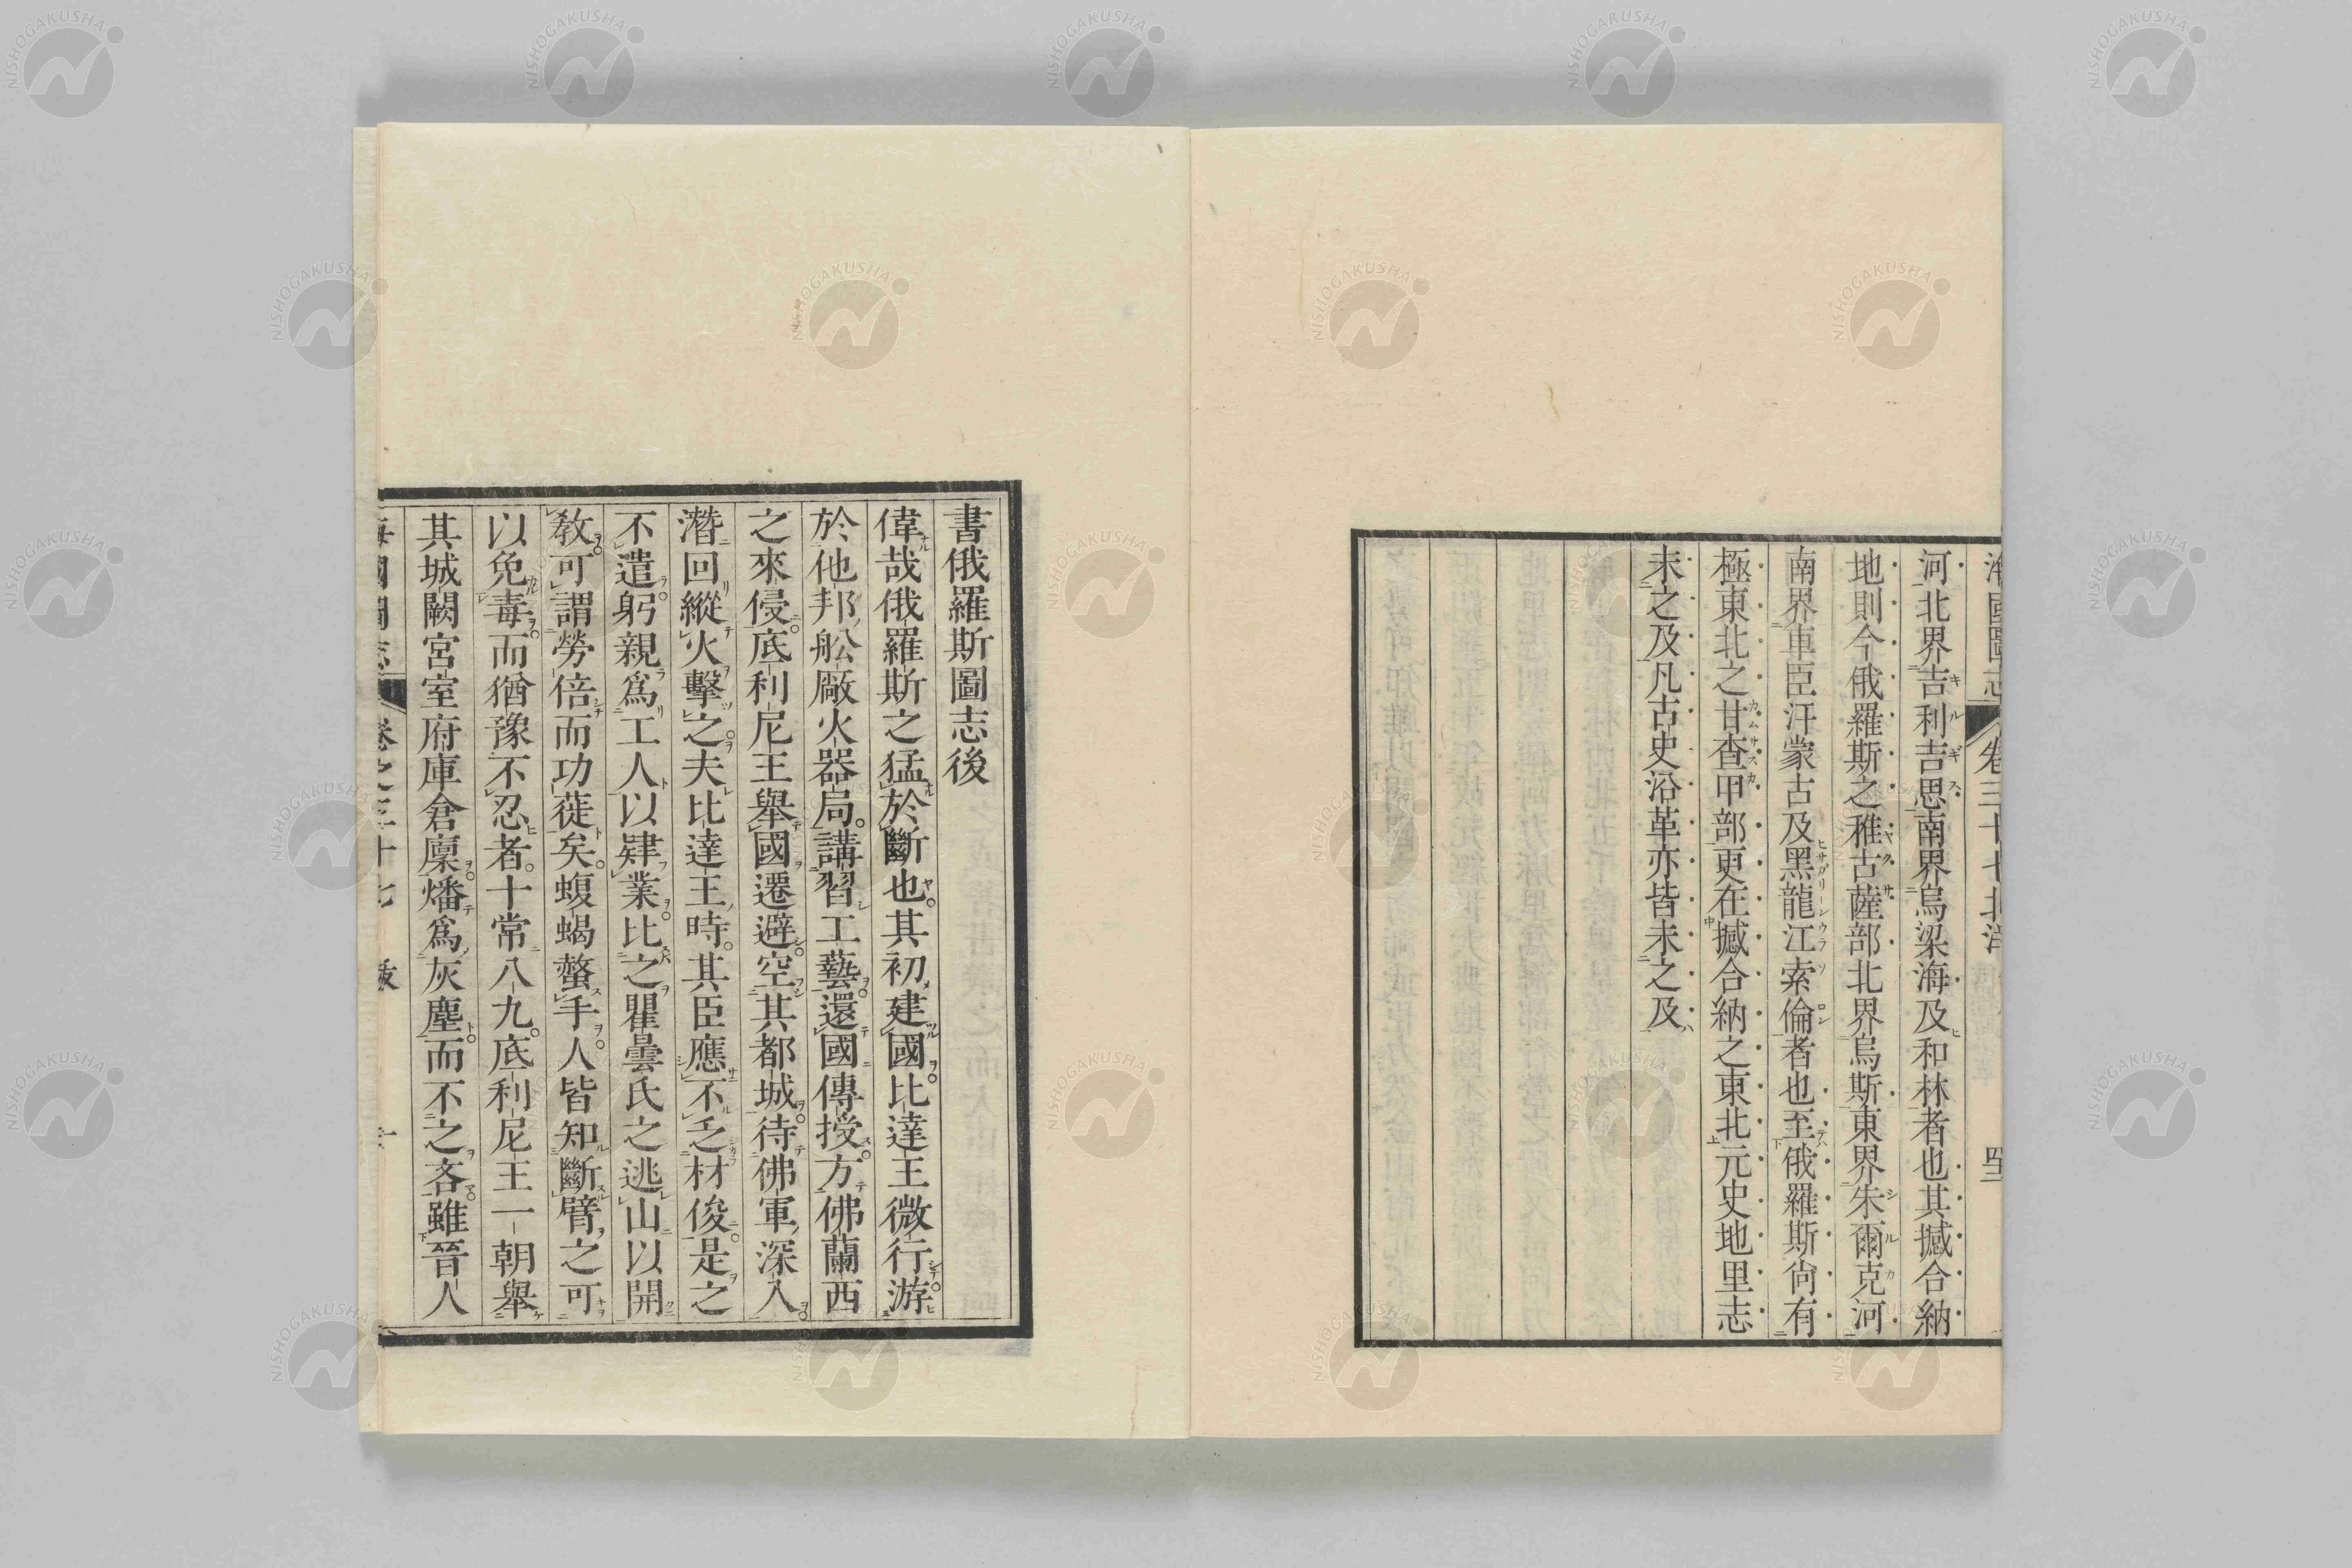 海國圖志 卷三十七北洋
河北界吉利吉思南界烏梁海及和林者也其撼合納
地則今俄羅斯之稚古薩部北界烏斯東界朱爾克河
南界車臣汗蒙古及黑龍江索倫者也至俄羅斯尙有
極東北之甘查甲部更在撼合納之東北元史地里志
未之及凡古史沿革亦皆未之及
書俄羅斯圖志後
偉哉俄羅斯之猛於斷也其初建國比達王微行游
於他邦舩廠火器局講習工藝還國傳授方佛蘭西
之來侵底利尼王舉國遷避空其都城待佛軍深入
潛回縱火擊之夫比達王時其臣應不乏材俊是之
不遣躬親爲工人以肄業比之瞿曇氏之逃山以開
敎可謂勞倍而功蓰矣蝮蝎螫手人皆知斷臂之可
以免毒而猶豫不忍者十常八九底利尼王一朝舉
其城闕宮室府庫倉廩燔爲灰塵而不之吝雖晉人
海國圖志 卷之三十七 跋 一
NISHOGAKUSHA